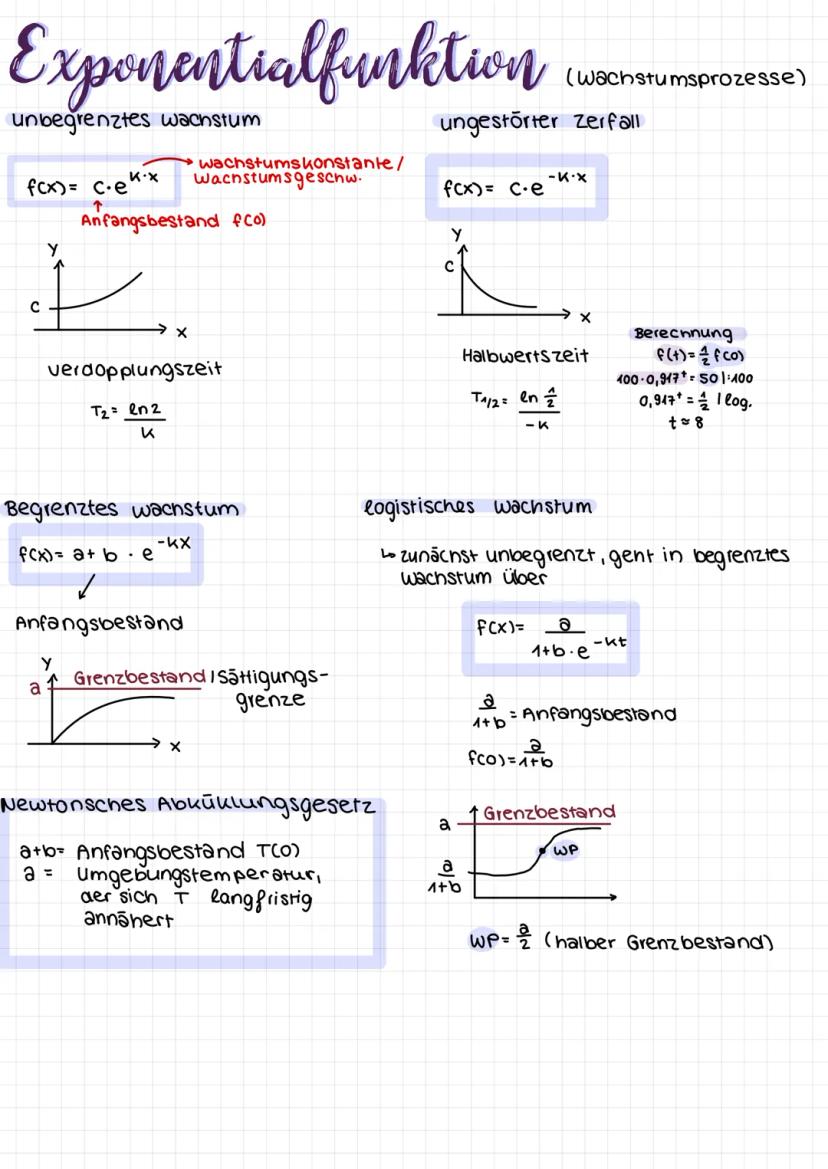 Exponentialfunktion (Wachstumsprozesse)
unbegrenztes Wachstum
f(x) = c·e^(k·x)
Wachstumskonstante/
Wachstumsgeschw.
Anfangsbestand f(0)
y
c
x
Verdopplungszeit
T₂ = ln 2 / k
ungestörter Zerfall
f(x) = c·e^(-k·x)
y
c
x
Halbwertszeit
T₁/₂ = ln ½ / -k
Berechnung
f(t) = ½ f(0)
100·0,917^t = 50 |:100
0,917^t = ½ | log.
t ≈ 8
Begrenztes Wachstum
f(x) = a + b · e^(-kx)
Anfangsbestand
y
a
Grenzbestand / Sättigungs-
grenze
x
logistisches Wachstum
↳ zunächst unbegrenzt, geht in begrenztes
Wachstum über
f(x) = a / 1+b·e^(-kt)
a / 1+b = Anfangsbestand
f(0) = a / 1+b
Grenzbestand
a
WP
a / 1+b
WP = a/2 (halber Grenzbestand)
Newtonsches Abküklungsgesetz
a+b = Anfangsbestand T(0)
a = Umgebungstemperatur,
der sich T langfristig
annähert